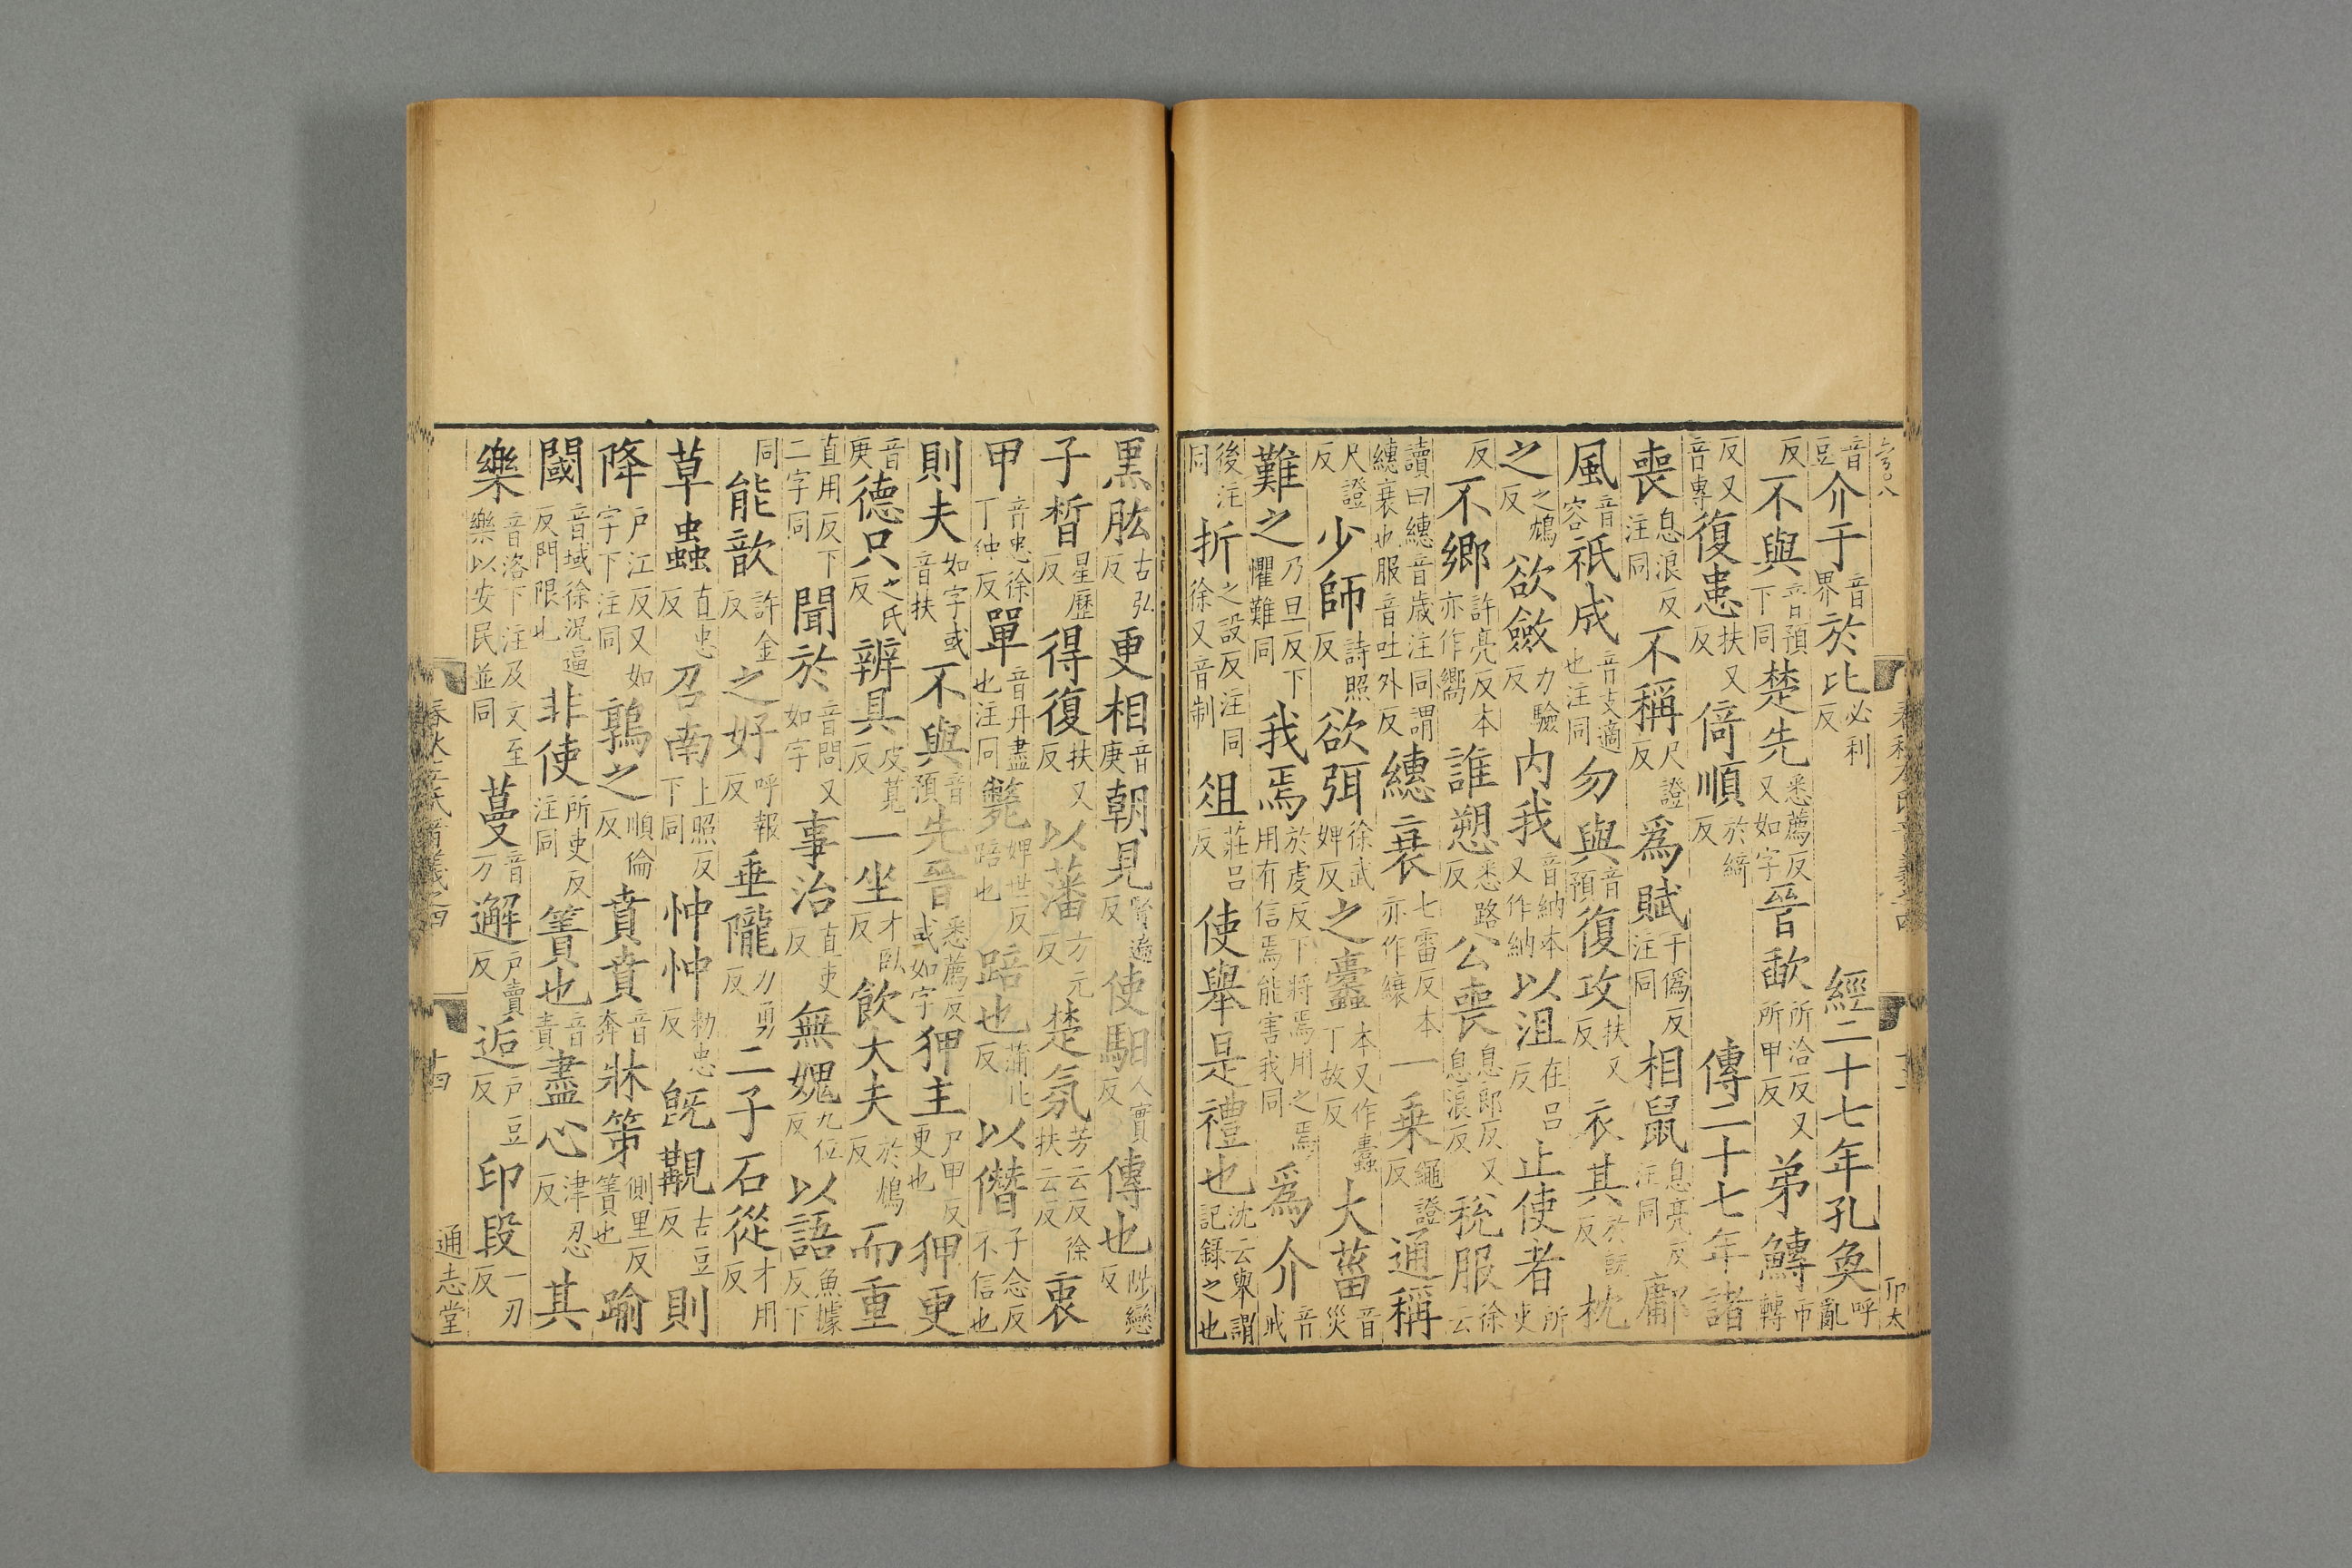 音豆介于音界於比必利反經二十七年孔奐呼亂
反不與音預下同楚先悉薦反又如字晉歃所洽反又所甲反弟鱄市轉
反又音專復患扶又反倚順於綺反傳二十七年諸
喪息浪反注同不稱尺證反爲賦于僞反注同相鼠息亮反注同鄘
風音容祇成音支適也注同勿與音預復攻扶又反衣其於旣反枕
之之鴆反欲斂力驗反内我音納本又作納以沮在吕反止使者所吏
反不鄉許亮反本亦作嚮誰愬悉路反公喪息郎反又息浪反稅服徐云
讀曰繐音歲注同謂繐衰也服音吐外反繐衰七雷反本亦作縗一乗繩證反通稱
尺證反少師詩照反欲弭徐武婢反之蠹本又作蠧丁故反大菑音災
難之乃旦反下懼難同我焉於虔反下將焉用之焉用有信焉能害我同爲介音戒
後注同折之設反注同徐又音制俎莊吕反使舉是禮也沈云舉謂記録之也
黒肱古弘反更相音庚朝見賢遍反使馹人實反傳也陟戀反
子晳星歷反得復扶又反以藩方元反楚氛芳云反徐扶云反衷
甲音忠徐丁仲反單音丹盡也注同斃婢世反踣也踣也蒲北反以僭子念反不信也
則夫如字或音扶不與音預先晉悉薦反或如字狎主戸甲反更也狎更
音庚德只之氏反辨具皮莧反一坐才臥反飲大夫於鴆反而重
直用反下二字同聞於音問又如字事治直吏反無媿九位反以語魚據反下
同能歆許金反之好呼報反垂隴力勇反二子石從才用反
草蟲直忠反召南上照反下同忡忡勑忠反旣覯古豆反則
降戸江反又如字下注同鶉之順倫反賁賁音奔牀第側里反簀也踰
閾音域徐況逼反門限也非使所吏反注同簀也音責盡心津忍反其
樂音洛下注及文至樂以安民並同蔓音万邂戸賣反逅戸豆反印段一刃反
通志堂